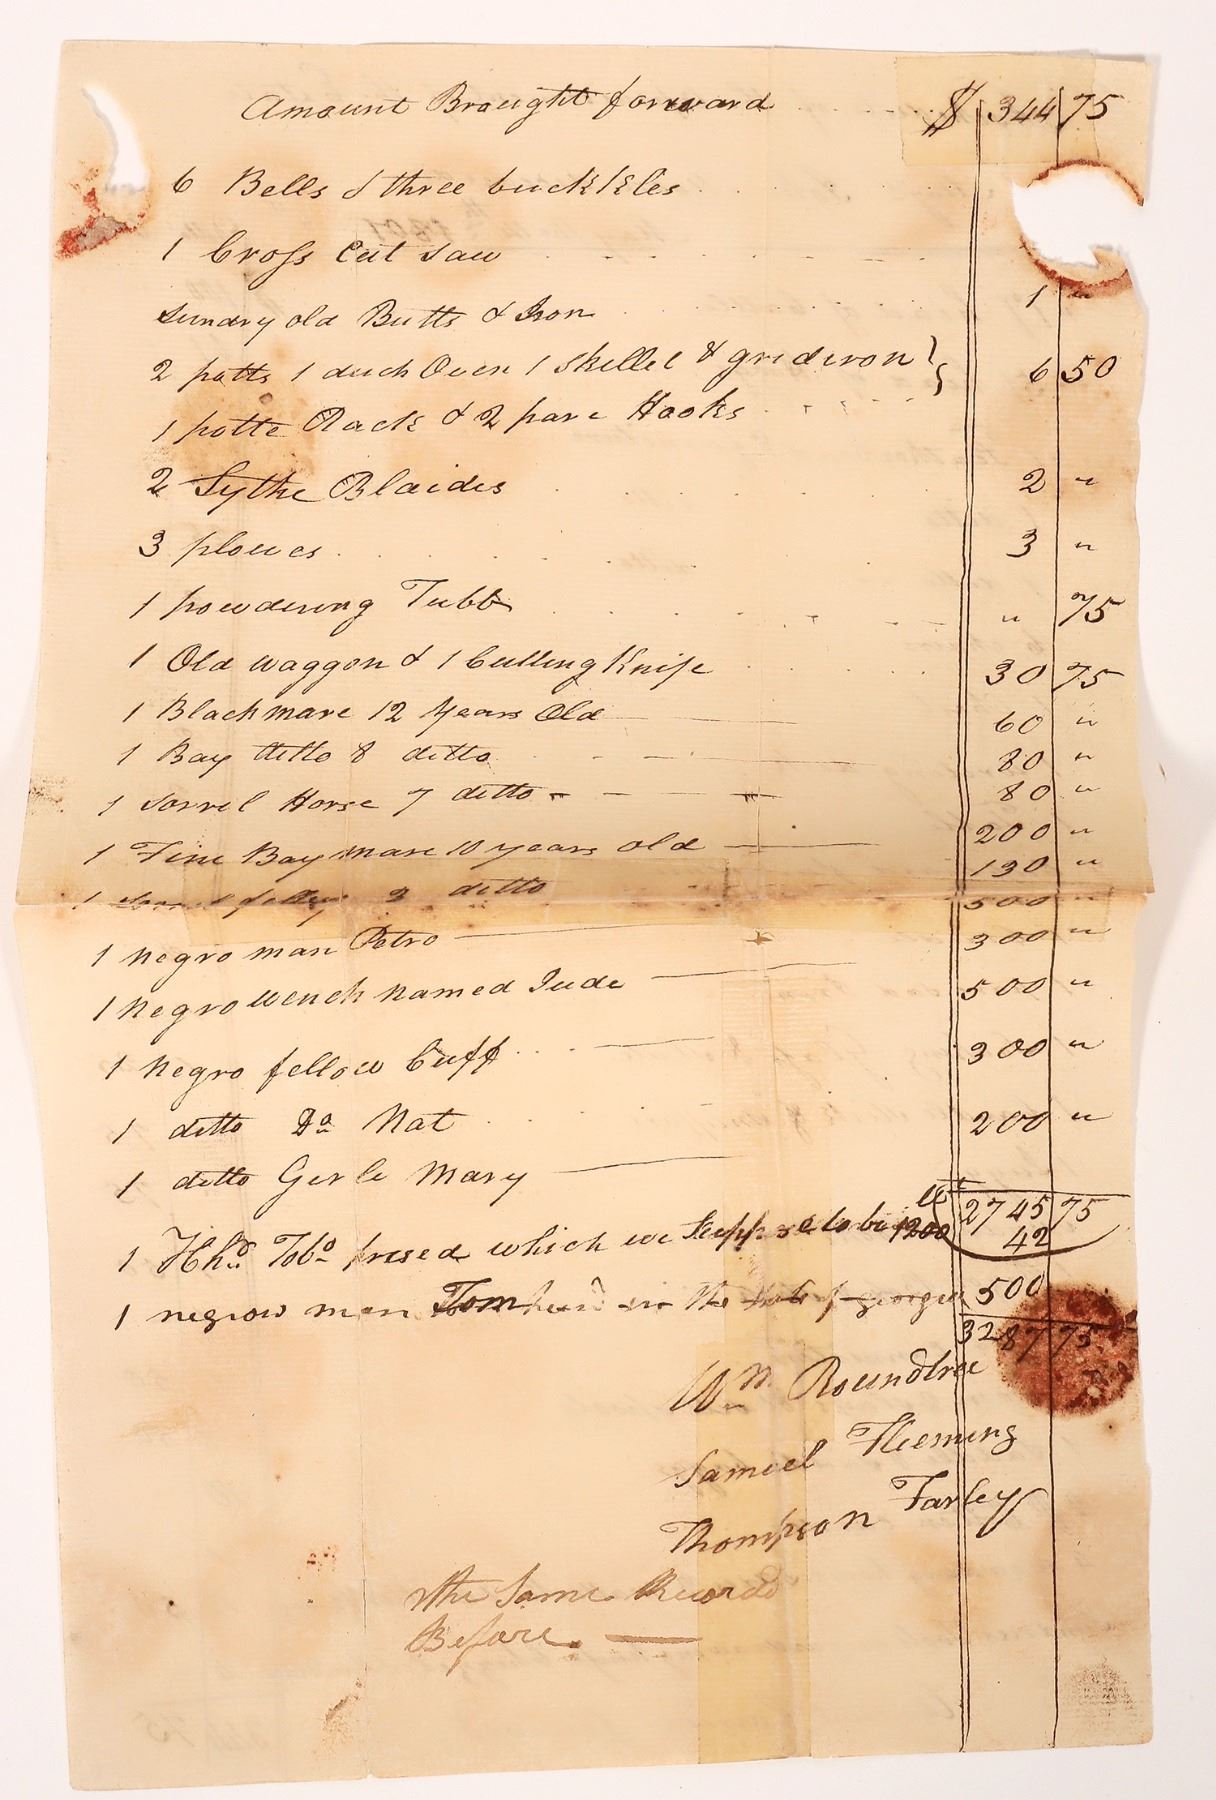 Amount Brought forward $ 344 75
6 Bells & three buckkles
1 Cross Cut Saw
Sundry old Butts & Iron 1 "
2 potts 1 duch Oven 1 Skellet & gridiron } 6 50
1 potte Rack & 2 pare Hooks
2 Sythe Blaides 2 "
3 ploues 3 "
1 powdering Tubb " 75
1 Old waggon & 1 Cutting Knife 30 75
1 Black mare 12 Years Old 60 "
1 Bay ditto 8 ditto 80 "
1 Sorrel Horse 7 ditto 80 "
1 Fine Bay mare 10 years old 200 "
1 Sorrel filley 3 ditto 130 "
1 negro man Petro 500 "
1 negro wench named Jude 300 "
1 negro fellow Cuff 500 "
1 ditto Do Nat 300 "
1 ditto Gerle Mary 200 "
2745 75
1 Hhd. Tobo. prised which we Suppose to be 1200 42
1 negrow man Tom in the State of georgia 500
3287 75
Wm Roundtree
Samuel Fleming
Thompson Farley
the Same Record
Before